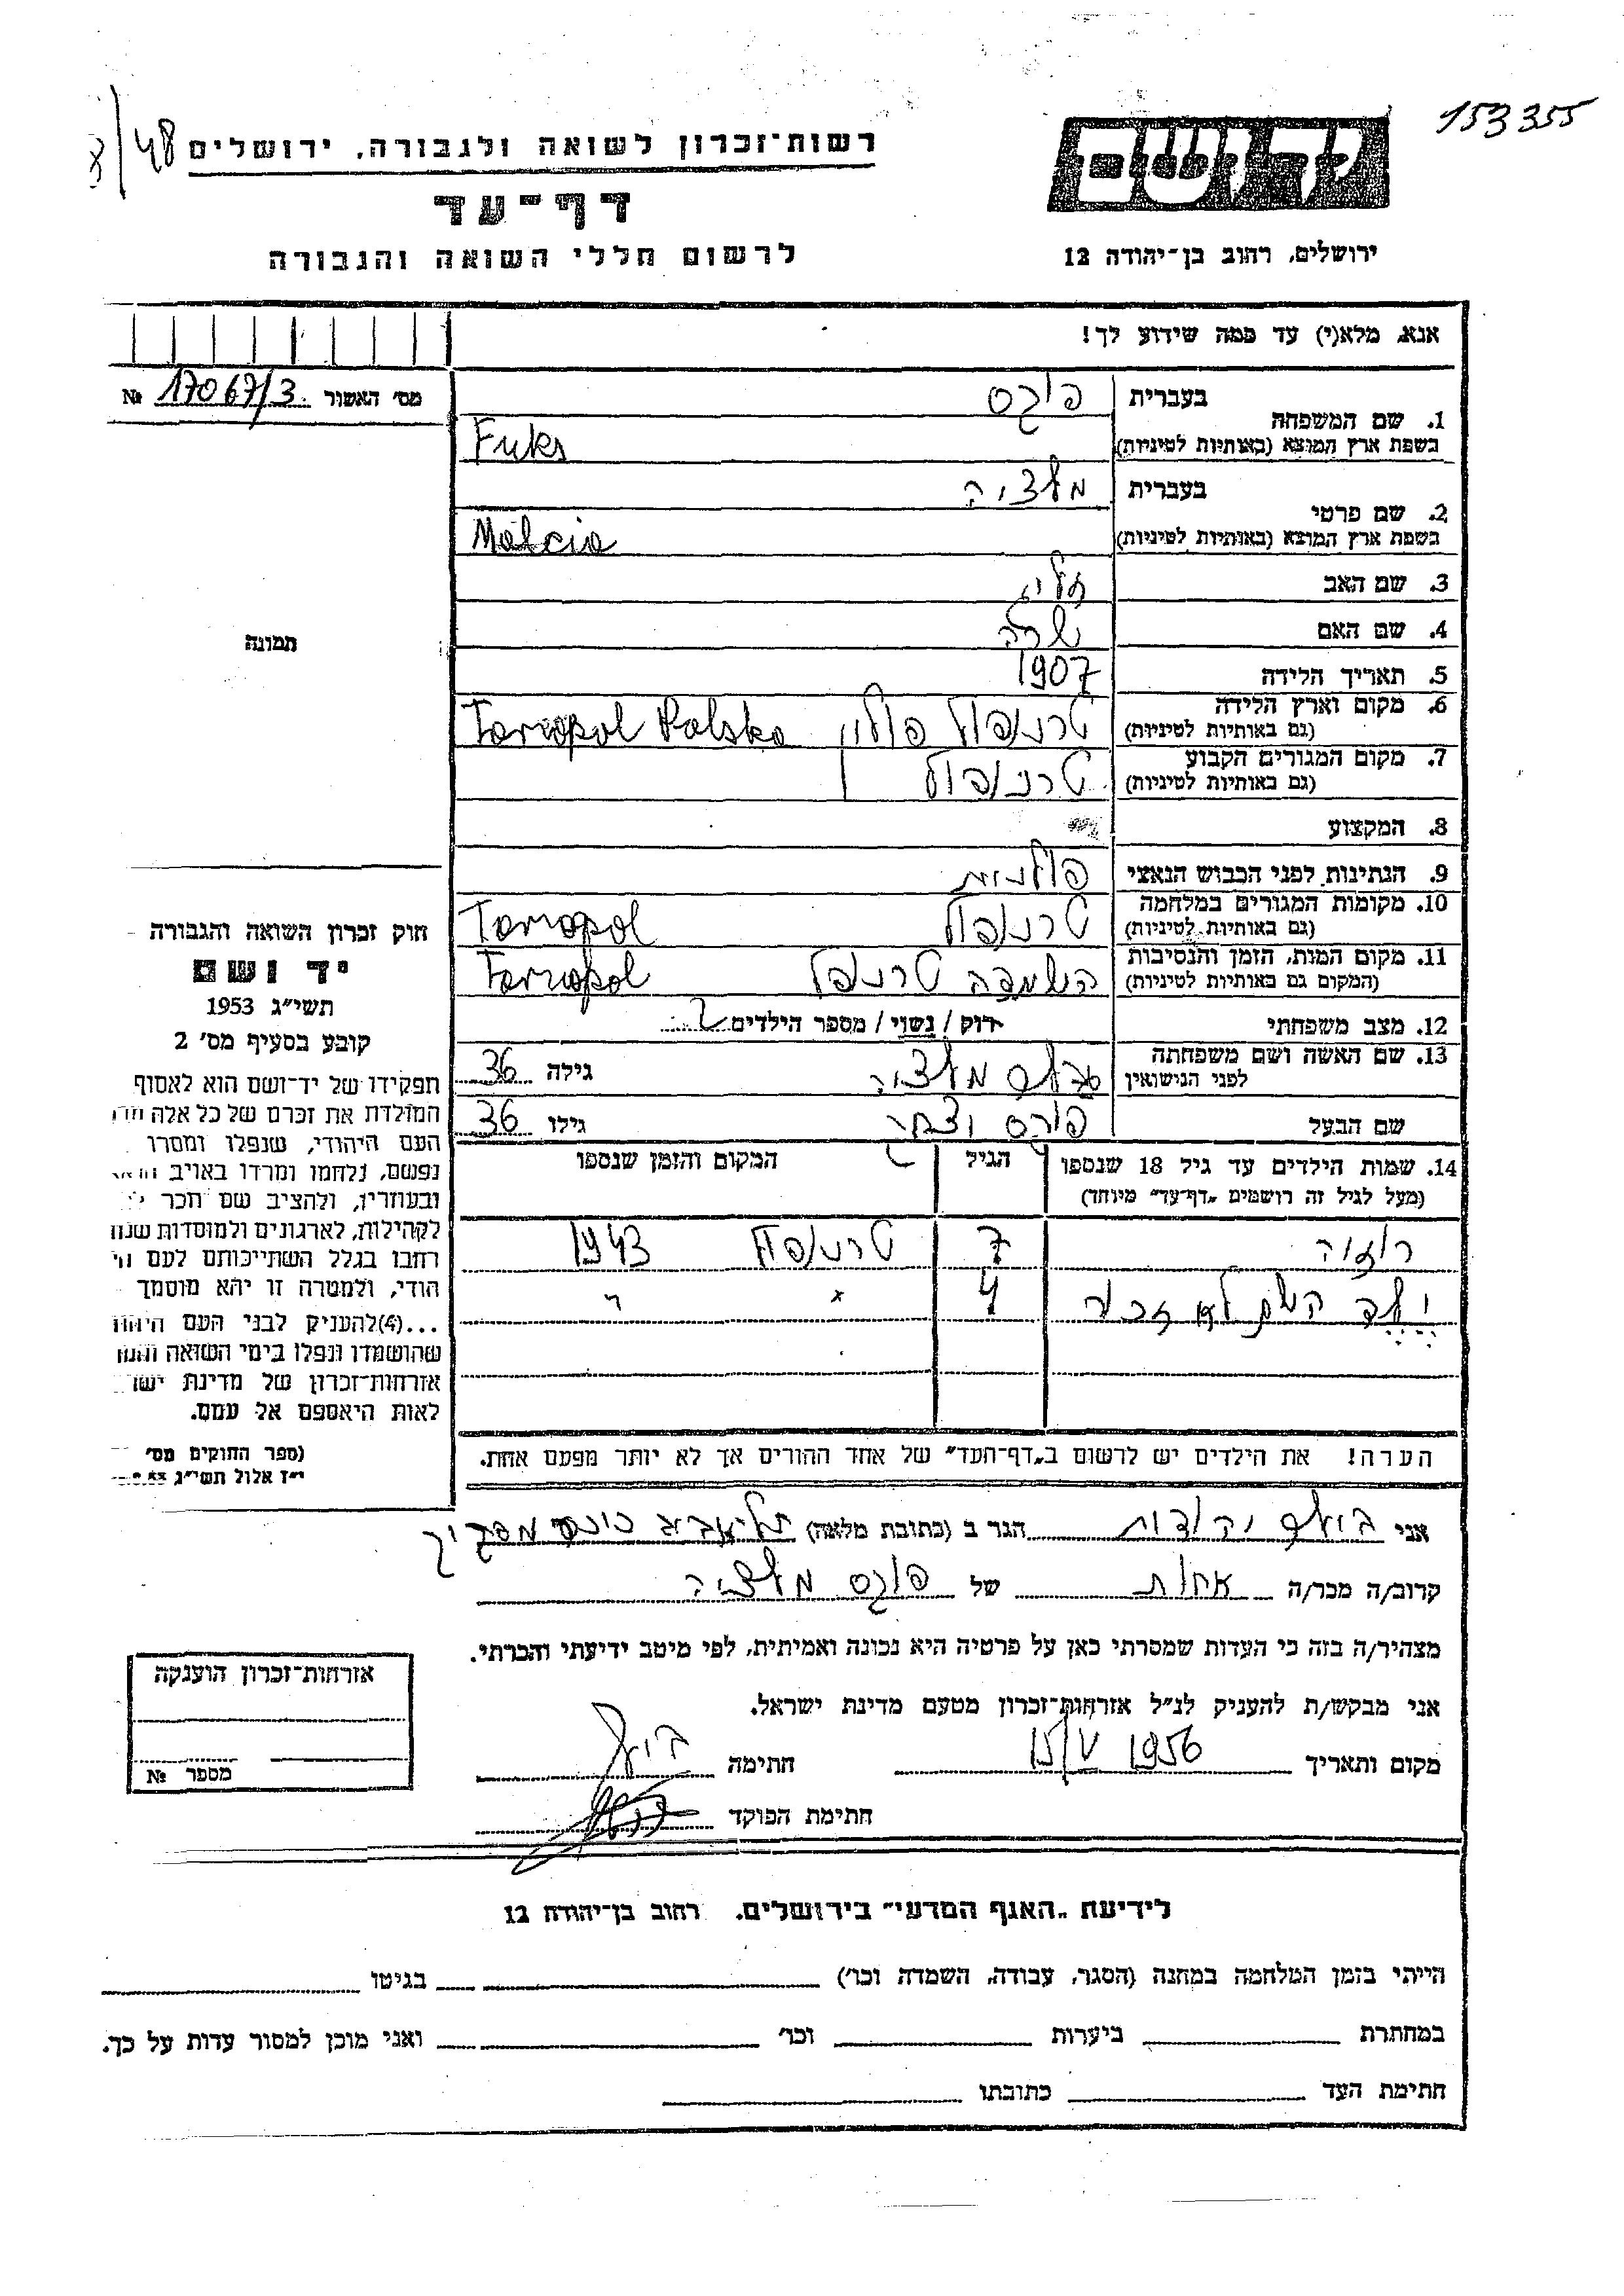 153355
ח/48
רשות־זכרון לשואה ולגבורה, ירושלים
יד ושם
דף־עד
לרשום חללי השואה והגבורה
ירושלים, רחוב בן־יהודה 12
אנא, מלא(י) עד כמה שידוע לך!
מס׳ האשור 17067/3 №
תמונה
בעברית פוקס
1. שם המשפחה
בשפת ארץ המוצא (באותיות לטיניות) Fuks
בעברית מלציה
2. שם פרטי
בשפת ארץ המוצא (באותיות לטיניות) Malcia
3. שם האב
4. שם האם שרה
5. תאריך הלידה 1907
6. מקום וארץ הלידה טרנופול פולין Tarnopol Polska
(גם באותיות לטיניות)
7. מקום המגורים הקבוע טרנופול
(גם באותיות לטיניות)
8. המקצוע
9. הנתינות לפני הכבוש הנאצי פולנית
10. מקומות המגורים במלחמה טרנופול Tarnopol
(גם באותיות לטיניות)
11. מקום המות, הזמן והנסיבות השמדה טרנופול Tarnopol
(המקום גם באותיות לטיניות)
12. מצב משפחתי רוק / נשוי / מספר הילדים 2
13. שם האשה ושם משפחתה מלציה גילה 36
לפני הנישואין
שם הבעל פוקס יצחק גילו 36
14. שמות הילדים עד גיל 18 שנספו הגיל המקום והזמן שנספו
(מעל לגיל זה רושמים „דף־עד״ מיוחד)
רוזה 7 טרנופול 1943
ילד השם לא זכור 4 " "
הערה! את הילדים יש לרשום ב„דף־העד״ של אחד ההורים אך לא יותר מפעם אחת.
חוק זכרון השואה והגבורה –
יד ושם
תשי״ג 1953
קובע בסעיף מס׳ 2
תפקידו של יד־ושם הוא לאסוף
המולדת את זכרם של כל אלה
העם היהודי, שנפלו ומסרו
נפשם, נלחמו ומרדו באויב
ובעוזריו, ולהציב שם וזכר
לקהילות, לארגונים ולמוסדות
רחבו בגלל השתייכותם לעם הי
הודי, ולמטרה זו יהא מוסמך
...(4) להעניק לבני העם
שהושמדו ונפלו בימי השואה
אזרחות־זכרון של מדינת
לאות היאספם אל עמם.
(ספר החוקים מס׳
י״ז אלול תשי״ג
אני יהודית הגר ב (כתובת מלאה) תל־אביב
קרוב/ה מכר/ה אחות של פוקס מלציה
מצהיר/ה בזה כי העדות שמסרתי כאן על פרטיה היא נכונה ואמיתית, לפי מיטב ידיעתי והכרתי.
אני מבקש/ת להעניק לנ״ל אזרחות־זכרון מטעם מדינת ישראל.
מקום ותאריך 15/V 1956 חתימה
חתימת הפוקד
אזרחות־זכרון הוענקה
מספר №
לידיעת „האגף המדעי״ בירושלים, רחוב בן־יהודה 12
הייתי בזמן המלחמה במחנה (הסגר, עבודה, השמדה וכו׳) בגיטו
במחתרת ביערות וכו׳ ואני מוכן למסור עדות על כך.
חתימת העד כתובתו